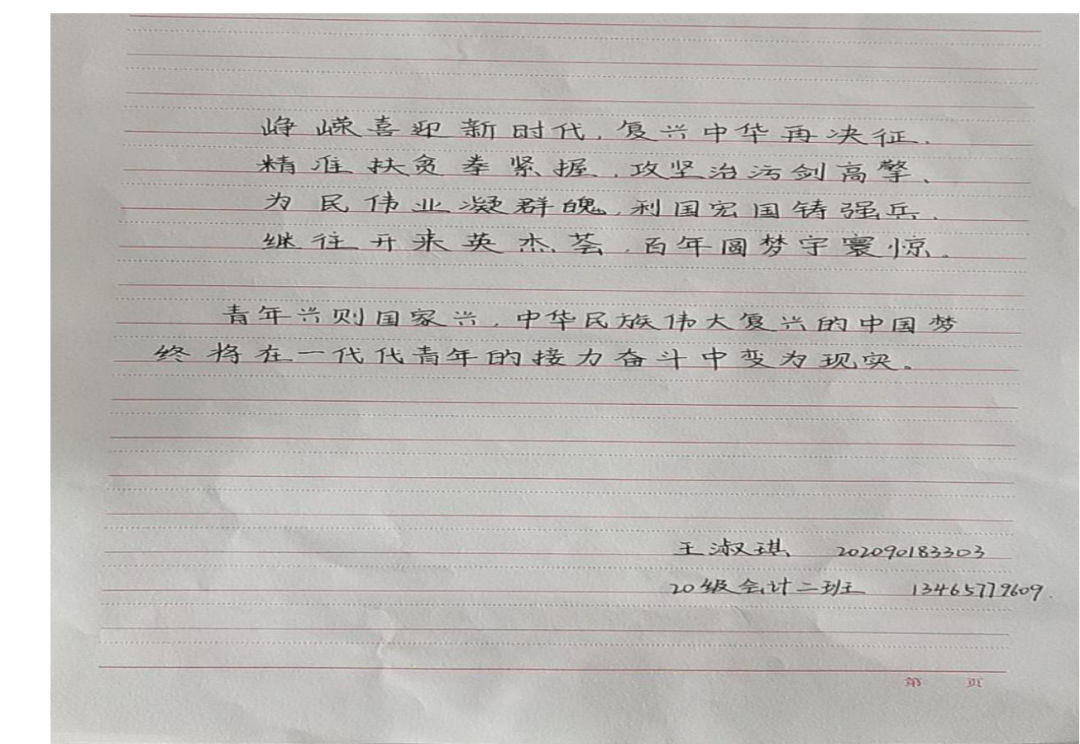 峥嵘喜迎新时代,复兴中华再决征.
精准扶贫拳紧握,攻坚治污剑高擎.
为民伟业凝群魄,利国宏国铸强兵.
继往开来英杰荟,百年圆梦宇寰惊.
青年兴则国家兴,中华民族伟大复兴的中国梦
终将在一代代青年的接力奋斗中变为现实。
王淑琪 202090183303
20级会计二班 13465779609.
第 页